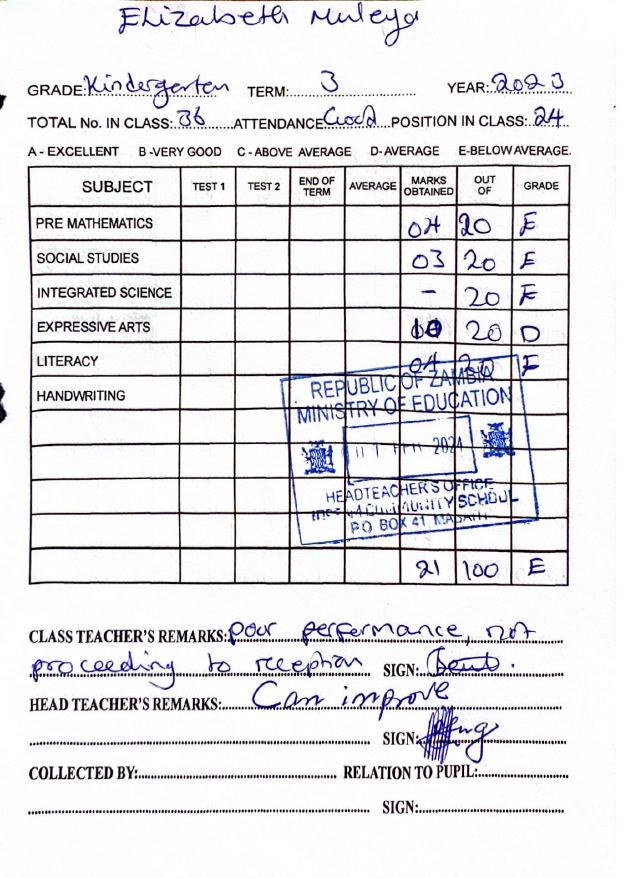 Elizabeth Muleya
GRADE: Kindergarten TERM: 3 YEAR: 2023
TOTAL No. IN CLASS: 36 ATTENDANCE Good POSITION IN CLASS: 24
A - EXCELLENT B -VERY GOOD C - ABOVE AVERAGE D-AVERAGE E-BELOW AVERAGE.
SUBJECT TEST 1 TEST 2 END OF TERM AVERAGE MARKS OBTAINED OUT OF GRADE
PRE MATHEMATICS 04 20 E
SOCIAL STUDIES 03 20 E
INTEGRATED SCIENCE - 20 E
EXPRESSIVE ARTS 10 20 D
LITERACY 04 20 E
HANDWRITING
REPUBLIC OF ZAMBIA
MINISTRY OF EDUCATION
2024
HEADTEACHER'S OFFICE
COMMUNITY SCHOOL
PO BOX 41
21 100 E
CLASS TEACHER'S REMARKS: poor performance, not
proceeding to reception SIGN:
HEAD TEACHER'S REMARKS: Can improve
SIGN:
COLLECTED BY: RELATION TO PUPIL:
SIGN: